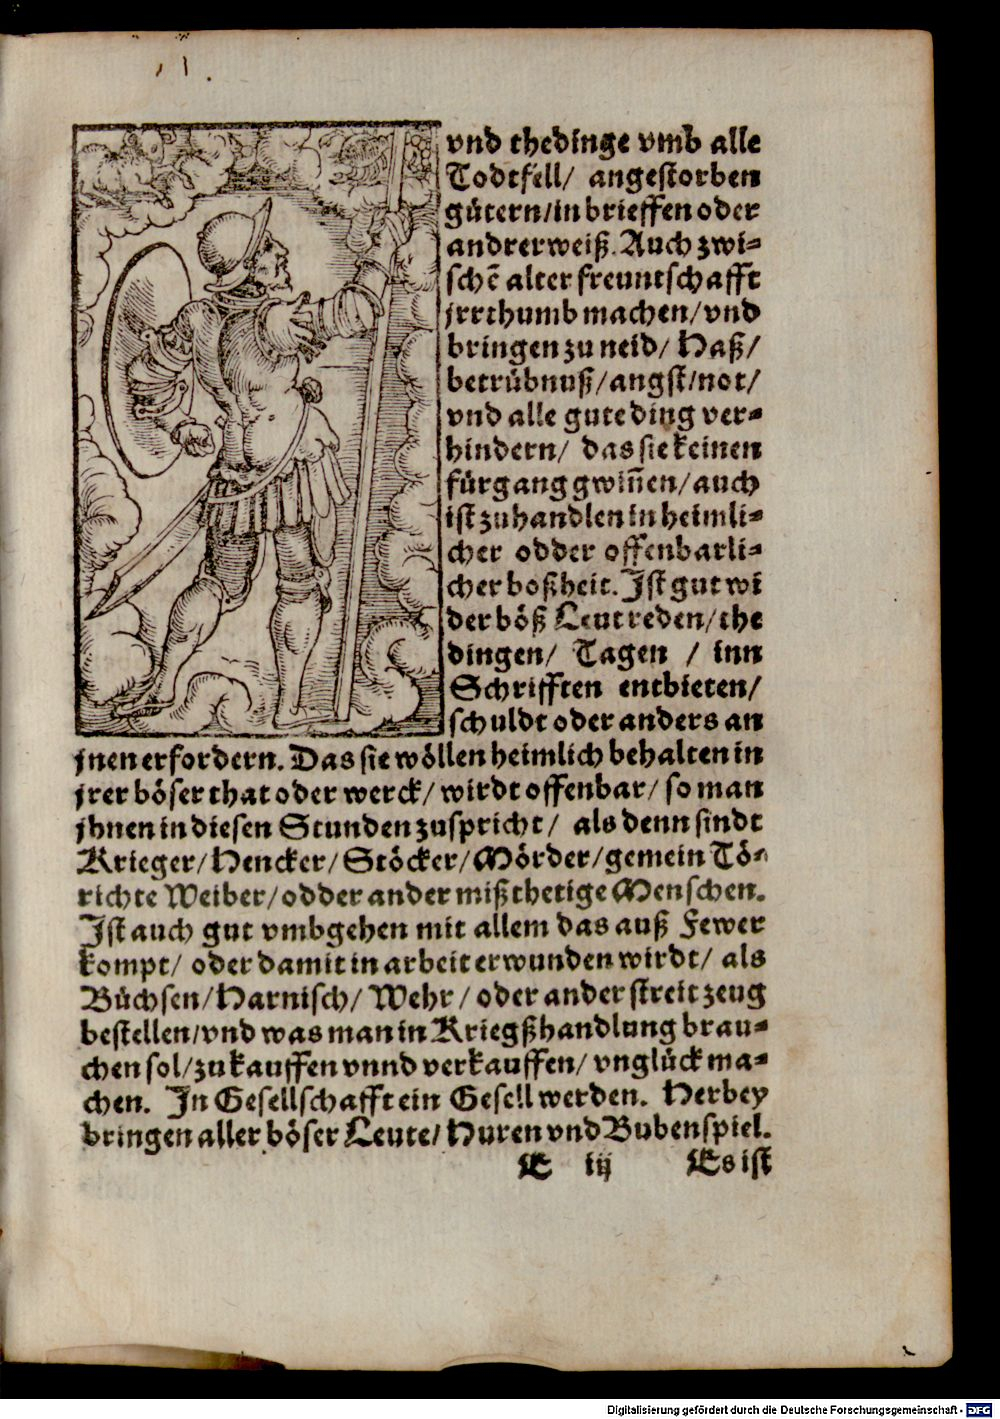 vnd thedinge vmb alle
Todtfell/ angestorben
gütern/in brieffen oder
andrer weiß. Auch zwi-
schē alter freuntschafft
jrrthumb machen/vnd
bringen zu neid/ Haß/
betrübnuß/angst/not/
vnd alle gute ding ver-
hindern/ das sie keinen
fürgang gwiñen/auch
ist zuhandlen in heimli-
cher odder offenbarli-
cher boßheit. Ist gut wi
der böß Leut reden/the
dingen/ Tagen / inn
Schrifften entbieten/
schuldt oder anders an
jnen erfordern. Das sie wöllen heimlich behalten in
jrer böser that oder werck/ wirdt offenbar/ so man
jhnen in diesen Stunden zuspricht/ als denn sindt
Krieger/Hencker/Stöcker/Mörder/gemein Tö-
richte Weiber/odder ander mißthetige Menschen.
Ist auch gut vmbgehen mit allem das auß Fewer
kompt/ oder damit in arbeit erwunden wirdt/ als
Büchsen/Harnisch/ Wehr/ oder ander streit zeug
bestellen/vnd was man in Kriegßhandlung brau-
chen sol/zukauffen vnnd verkauffen/ vnglück ma-
chen. In Gesellschafft ein Gesell werden. Herbey
bringen aller böser Leute/ Huren vnd Bubenspiel.
E iij Es ist
Digitalisierung gefördert durch die Deutsche Forschungsgemeinschaft - DFG